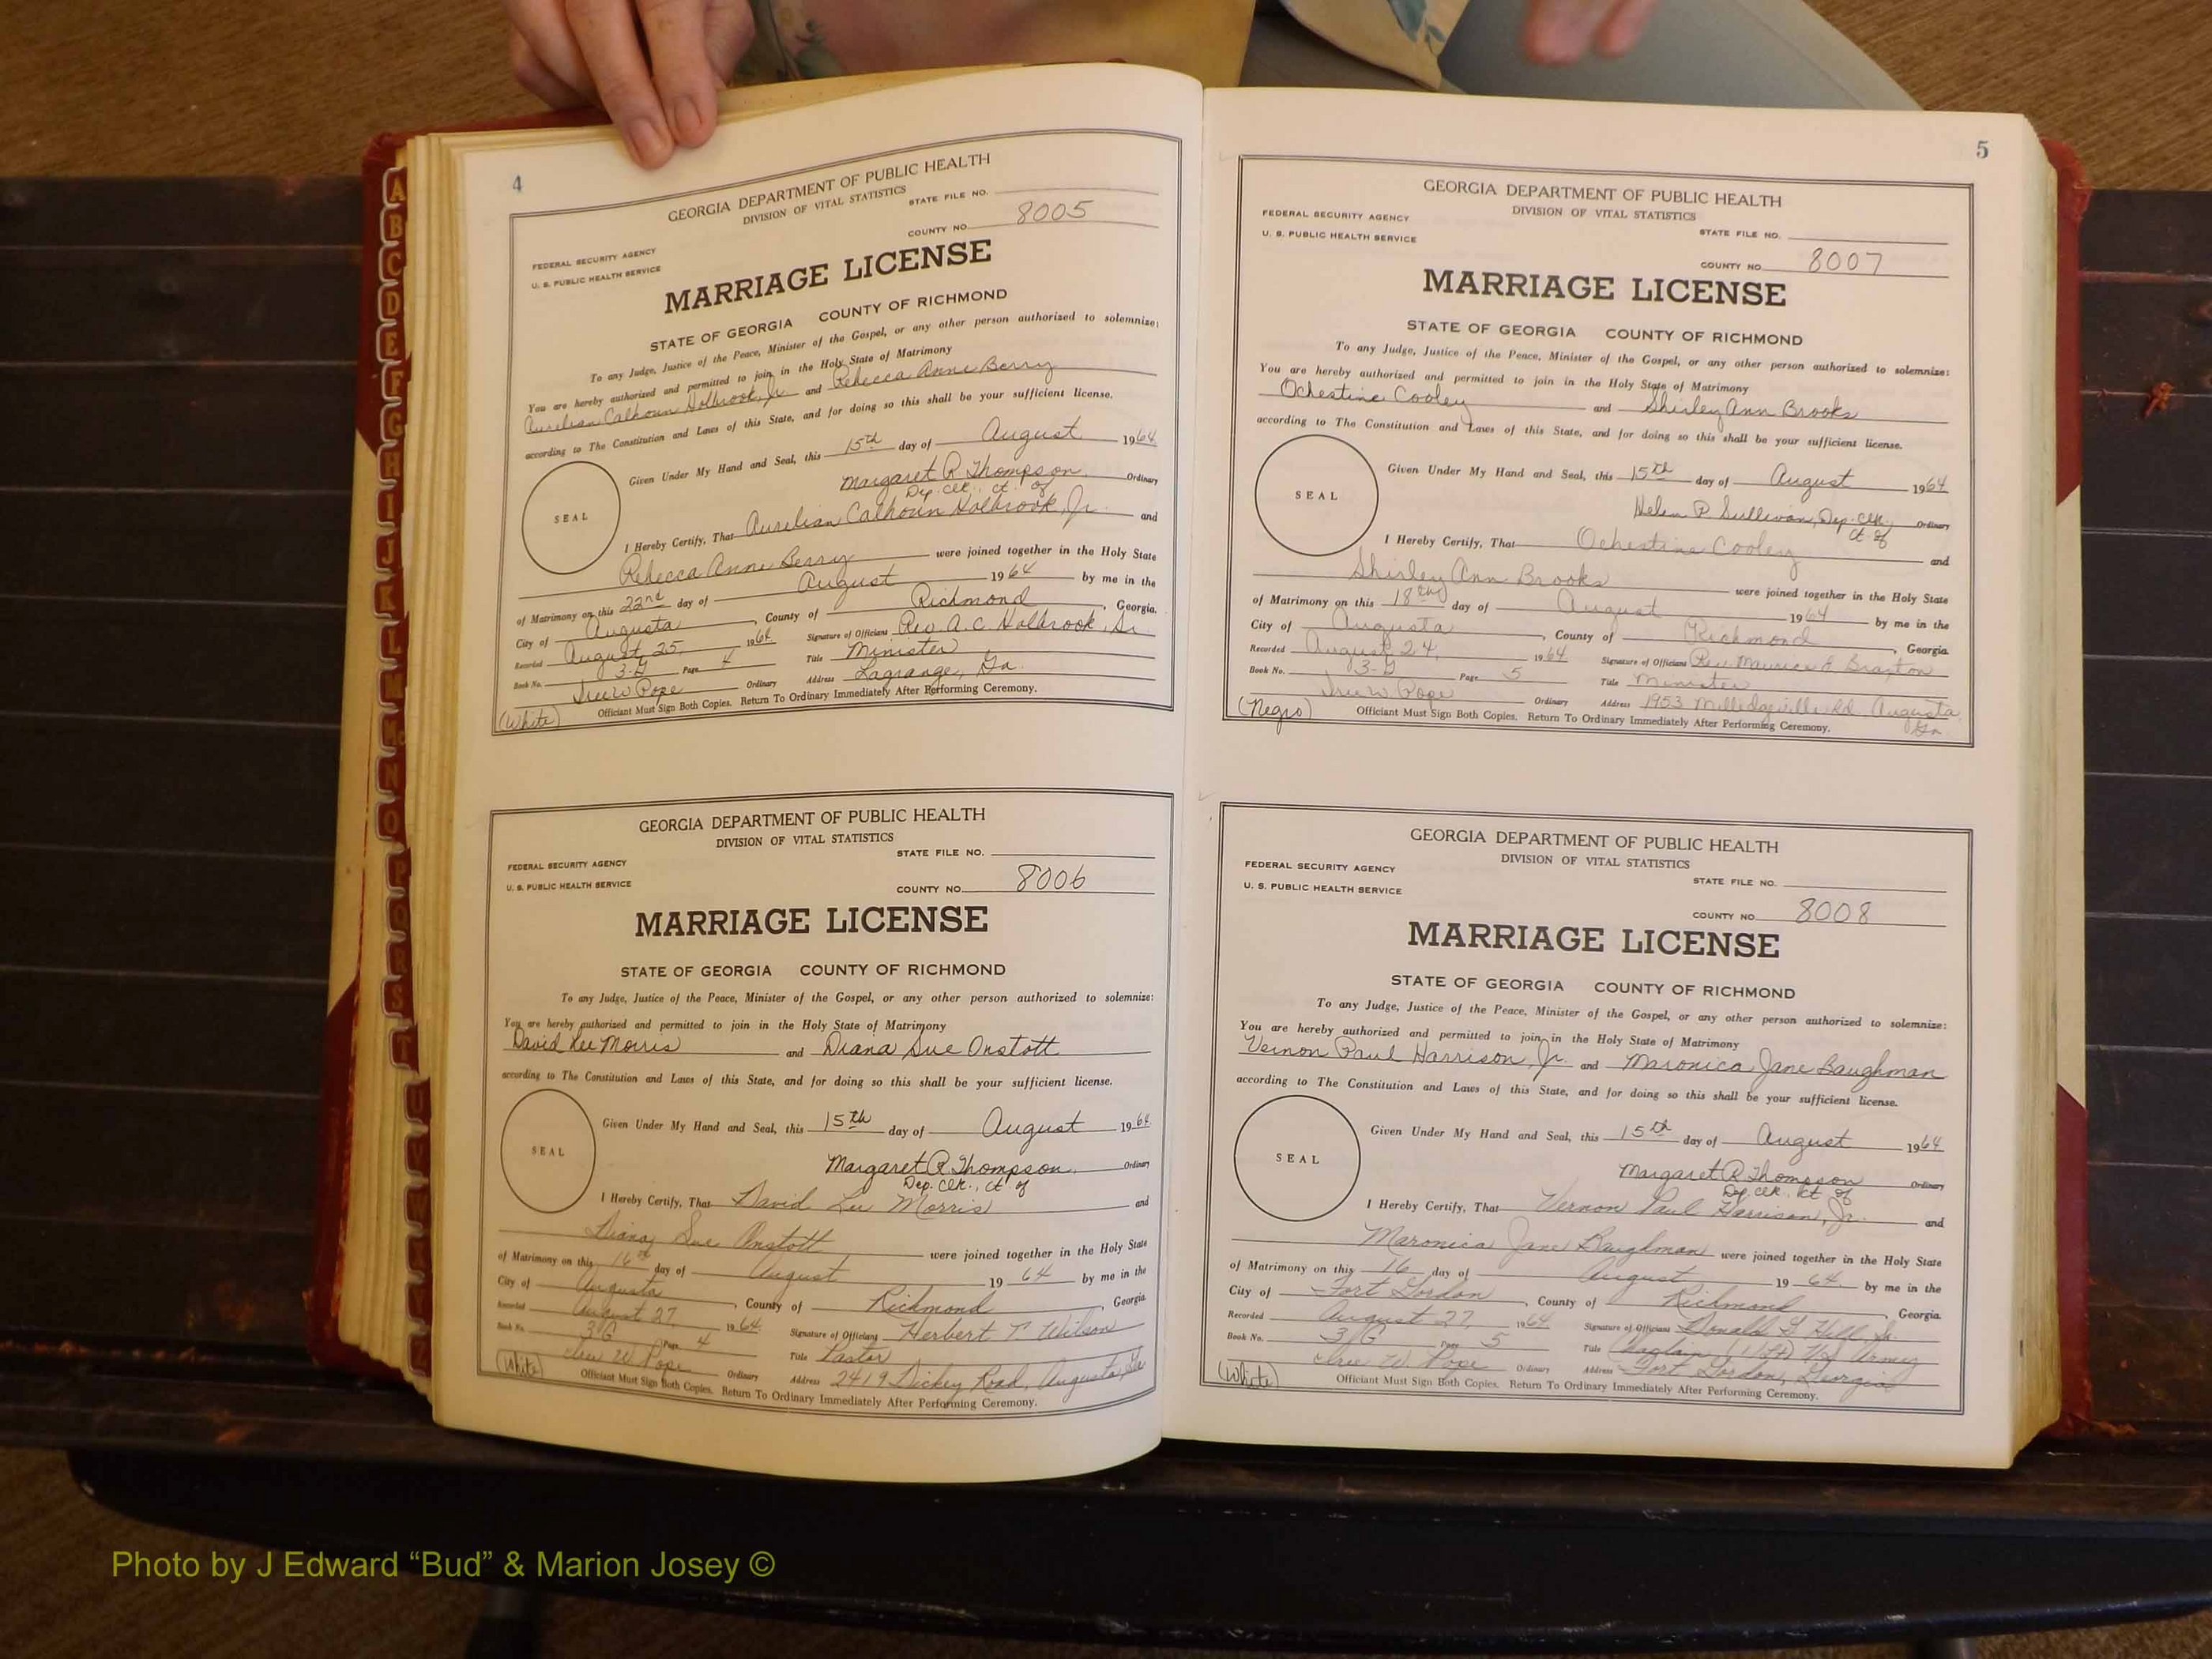 4
GEORGIA DEPARTMENT OF PUBLIC HEALTH
DIVISION OF VITAL STATISTICS
STATE FILE NO.
COUNTY NO. 8005
FEDERAL SECURITY AGENCY
U. S. PUBLIC HEALTH SERVICE
MARRIAGE LICENSE
STATE OF GEORGIA COUNTY OF RICHMOND
To any Judge, Justice of the Peace, Minister of the Gospel, or any other person authorized to solemnize:
You are hereby authorized and permitted to join in the Holy State of Matrimony
Aurelian Calhoun Holbrook, Jr. and Rebecca Anne Berry
according to The Constitution and Laws of this State, and for doing so this shall be your sufficient license.
Given Under My Hand and Seal, this 15th day of August 1964
Margaret R Thompson Ordinary
Dep. Clk., Ct. of
SEAL
I Hereby Certify, That Aurelian Calhoun Holbrook, Jr. and
Rebecca Anne Berry were joined together in the Holy State
of Matrimony on this 22nd day of August 1964 by me in the
City of Augusta, County of Richmond, Georgia.
Recorded August 25, 1964 Signature of Officiant Rev. A. C. Holbrook, Sr.
Book No. 3-G Page 4 Title Minister
Ordinary Address Lagrange, Ga.
(White) Officiant Must Sign Both Copies. Return To Ordinary Immediately After Performing Ceremony.
GEORGIA DEPARTMENT OF PUBLIC HEALTH
DIVISION OF VITAL STATISTICS
STATE FILE NO.
FEDERAL SECURITY AGENCY
U. S. PUBLIC HEALTH SERVICE
COUNTY NO. 8006
MARRIAGE LICENSE
STATE OF GEORGIA COUNTY OF RICHMOND
To any Judge, Justice of the Peace, Minister of the Gospel, or any other person authorized to solemnize:
You are hereby authorized and permitted to join in the Holy State of Matrimony
David Lee Morris and Diana Sue Onstott
according to The Constitution and Laws of this State, and for doing so this shall be your sufficient license.
Given Under My Hand and Seal, this 15th day of August 1964
Margaret R Thompson Ordinary
Dep. Clk., Ct of
SEAL
I Hereby Certify, That David Lee Morris and
Diana Sue Onstott were joined together in the Holy State
of Matrimony on this 16th day of August 1964 by me in the
City of Augusta, County of Richmond, Georgia.
Recorded August 27, 1964 Signature of Officiant Herbert T Wilson
Book No. 3G Page 4 Title Pastor
Ordinary Address 2419 Dickey Road, Augusta, Ga
(White) Officiant Must Sign Both Copies. Return To Ordinary Immediately After Performing Ceremony.
5
GEORGIA DEPARTMENT OF PUBLIC HEALTH
DIVISION OF VITAL STATISTICS
FEDERAL SECURITY AGENCY
U. S. PUBLIC HEALTH SERVICE
STATE FILE NO.
COUNTY NO. 8007
MARRIAGE LICENSE
STATE OF GEORGIA COUNTY OF RICHMOND
To any Judge, Justice of the Peace, Minister of the Gospel, or any other person authorized to solemnize:
You are hereby authorized and permitted to join in the Holy State of Matrimony
Ochestine Cooley and Shirley Ann Brooks
according to The Constitution and Laws of this State, and for doing so this shall be your sufficient license.
Given Under My Hand and Seal, this 15th day of August 1964
Helen P. Sullivan, Dep. Clk. Ordinary
Ct of
SEAL
I Hereby Certify, That Ochestine Cooley and
Shirley Ann Brooks were joined together in the Holy State
of Matrimony on this 18th day of August 1964 by me in the
City of Augusta, County of Richmond, Georgia.
Recorded August 24, 1964 Signature of Officiant Rev. Braxton
Book No. 3-G Page 5 Title Minister
Ordinary Address 1953 Milledgeville Rd. Augusta Ga.
(Negro) Officiant Must Sign Both Copies. Return To Ordinary Immediately After Performing Ceremony.
GEORGIA DEPARTMENT OF PUBLIC HEALTH
DIVISION OF VITAL STATISTICS
FEDERAL SECURITY AGENCY
U. S. PUBLIC HEALTH SERVICE
STATE FILE NO.
COUNTY NO. 8008
MARRIAGE LICENSE
STATE OF GEORGIA COUNTY OF RICHMOND
To any Judge, Justice of the Peace, Minister of the Gospel, or any other person authorized to solemnize:
You are hereby authorized and permitted to join in the Holy State of Matrimony
Vernon Paul Harrison, Jr. and Maronica Jane Baughman
according to The Constitution and Laws of this State, and for doing so this shall be your sufficient license.
Given Under My Hand and Seal, this 15th day of August 1964
Margaret R Thompson Ordinary
Dep. Clk., Ct of
SEAL
I Hereby Certify, That Vernon Paul Harrison, Jr. and
Maronica Jane Baughman were joined together in the Holy State
of Matrimony on this 16 day of August 1964 by me in the
City of Fort Gordon, County of Richmond, Georgia.
Recorded August 27, 1964 Signature of Officiant Donald G Hill, Jr.
Book No. 3G Page 5 Title Chaplain (1/Lt) US Army
Ordinary Address Fort Gordon, Georgia
(White) Officiant Must Sign Both Copies. Return To Ordinary Immediately After Performing Ceremony.
A
B
C
D
E
F
G
H
I
J
K
L
M
Mc
N
O
P
Q
R
S
T
Photo by J Edward “Bud” & Marion Josey ©